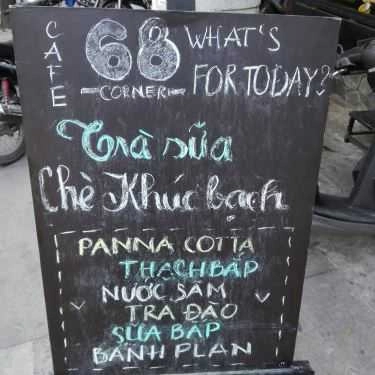 CAFE
68
CORNER
WHAT'S
FOR TODAY?
Trà sữa
Chè Khúc bạch
PANNA COTTA
THẠCH BẮP
NƯỚC SÂM
TRÀ ĐÀO
SỮA BẮP
BÁNH PLAN